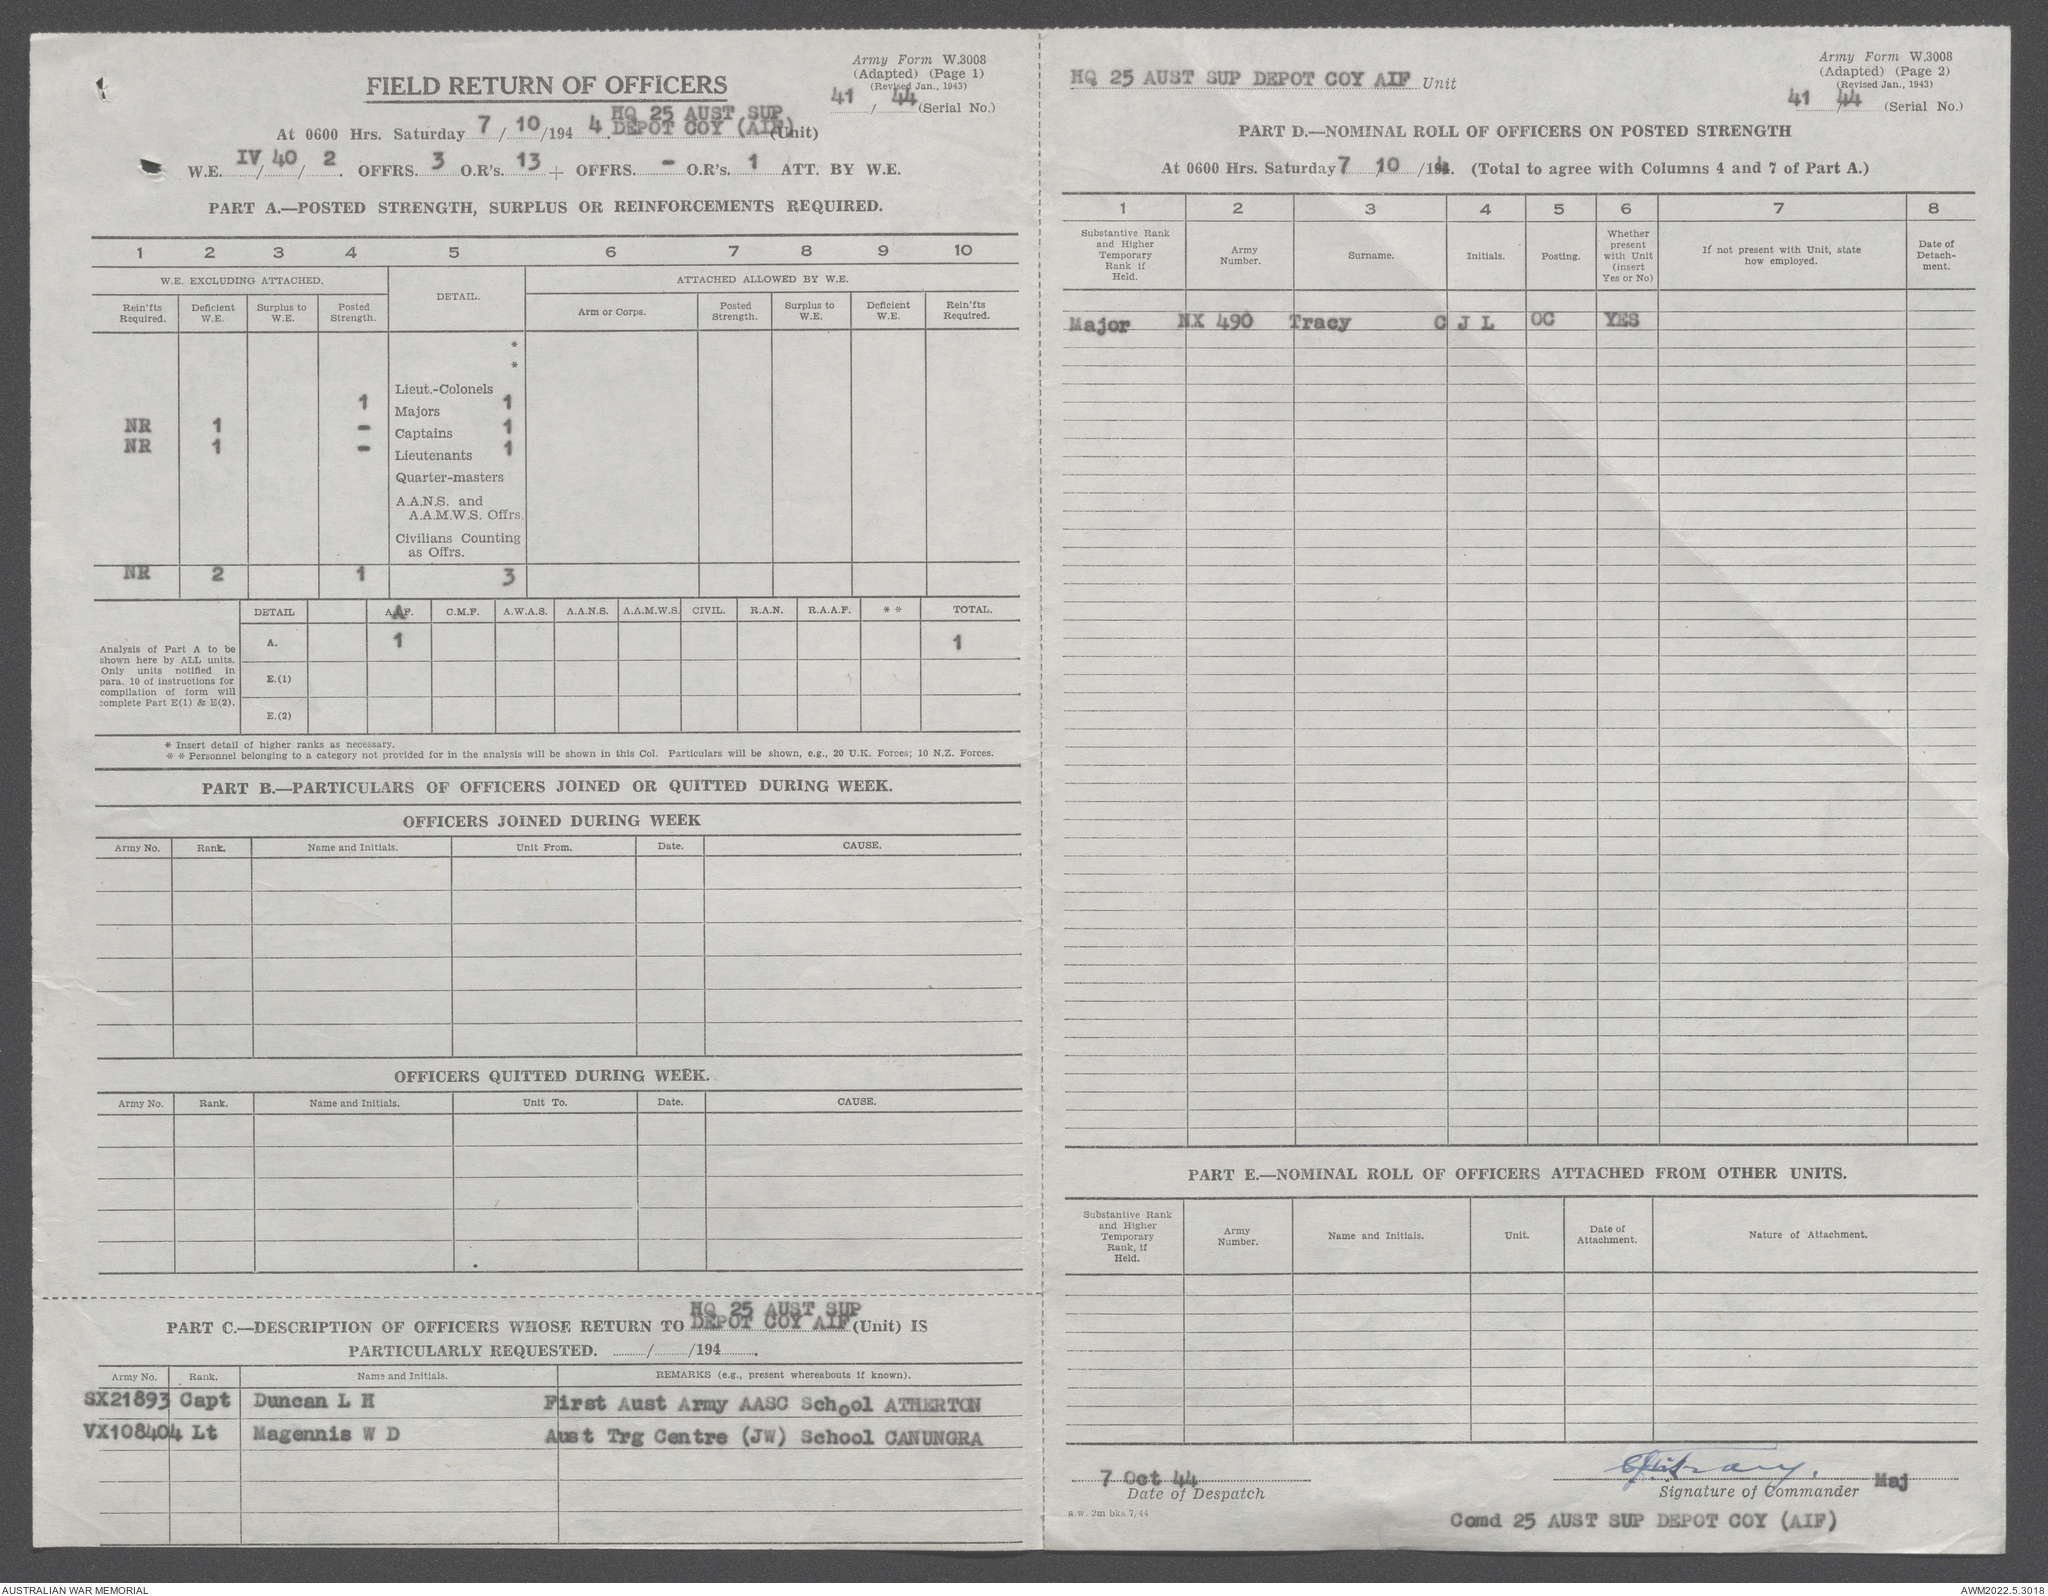 Army Form W.3008
(Adapted) (Page 1)
(Revised Jan., 1943)
41 / 44 (Serial No.)
FIELD RETURN OF OFFICERS
HQ 25 AUST SUP
At 0600 Hrs. Saturday 7/10/194 4. DEPOT COY (AIF) (Unit)
W.E. IV/40/2. OFFRS. 3 O.R's. 13 + OFFRS. - O.R's. 1 ATT. BY W.E.
PART A.—POSTED STRENGTH, SURPLUS OR REINFORCEMENTS REQUIRED.
1 2 3 4 5 6 7 8 9 10
W.E. EXCLUDING ATTACHED. DETAIL. ATTACHED ALLOWED BY W.E.
Rein'fts Required. Deficient W.E. Surplus to W.E. Posted Strength. Arm or Corps. Posted Strength. Surplus to W.E. Deficient W.E. Rein'fts Required.
*
*
Lieut.-Colonels
1 Majors 1
NR 1 - Captains 1
NR 1 - Lieutenants 1
Quarter-masters
A.A.N.S. and
A.A.M.W.S. Offrs.
Civilians Counting
as Offrs.
NR 2 1 3
DETAIL A.I.F. C.M.F. A.W.A.S. A.A.N.S. A.A.M.W.S. CIVIL. R.A.N. R.A.A.F. * * TOTAL.
A. 1 1
E.(1)
E.(2)
Analysis of Part A to be
shown here by ALL units.
Only units notified in
para. 10 of instructions for
compilation of form will
complete Part E(1) & E(2).
* Insert detail of higher ranks as necessary.
* * Personnel belonging to a category not provided for in the analysis will be shown in this Col. Particulars will be shown, e.g., 20 U.K. Forces; 10 N.Z. Forces.
PART B.—PARTICULARS OF OFFICERS JOINED OR QUITTED DURING WEEK.
OFFICERS JOINED DURING WEEK
Army No. Rank. Name and Initials. Unit From. Date. CAUSE.
OFFICERS QUITTED DURING WEEK.
Army No. Rank. Name and Initials. Unit To. Date. CAUSE.
HQ 25 AUST SUP
PART C.—DESCRIPTION OF OFFICERS WHOSE RETURN TO DEPOT COY AIF (Unit) IS
PARTICULARLY REQUESTED. ........./........./194.........
Army No. Rank. Name and Initials. REMARKS (e.g., present whereabouts if known).
SX21893 Capt Duncan L H First Aust Army AASC School ATHERTON
VX108404 Lt Magennis W D Aust Trg Centre (JW) School CANUNGRA
Army Form W.3008
(Adapted) (Page 2)
(Revised Jan., 1943)
41 / 44 (Serial No.)
HQ 25 AUST SUP DEPOT COY AIF Unit
PART D.—NOMINAL ROLL OF OFFICERS ON POSTED STRENGTH
At 0600 Hrs. Saturday 7/10/194. (Total to agree with Columns 4 and 7 of Part A.)
1 2 3 4 5 6 7 8
Substantive Rank and Higher Temporary Rank if Held. Army Number. Surname. Initials. Posting. Whether present with Unit (insert Yes or No) If not present with Unit, state how employed. Date of Detach-ment.
Major NX 490 Tracy C J L OC YES
PART E.—NOMINAL ROLL OF OFFICERS ATTACHED FROM OTHER UNITS.
Substantive Rank and Higher Temporary Rank, if Held. Army Number. Name and Initials. Unit. Date of Attachment. Nature of Attachment.
7 Oct 44
Date of Despatch
Maj
Signature of Commander
a.w. 2m bks 7/44
Comd 25 AUST SUP DEPOT COY (AIF)
AUSTRALIAN WAR MEMORIAL
AWM2022.5.3018